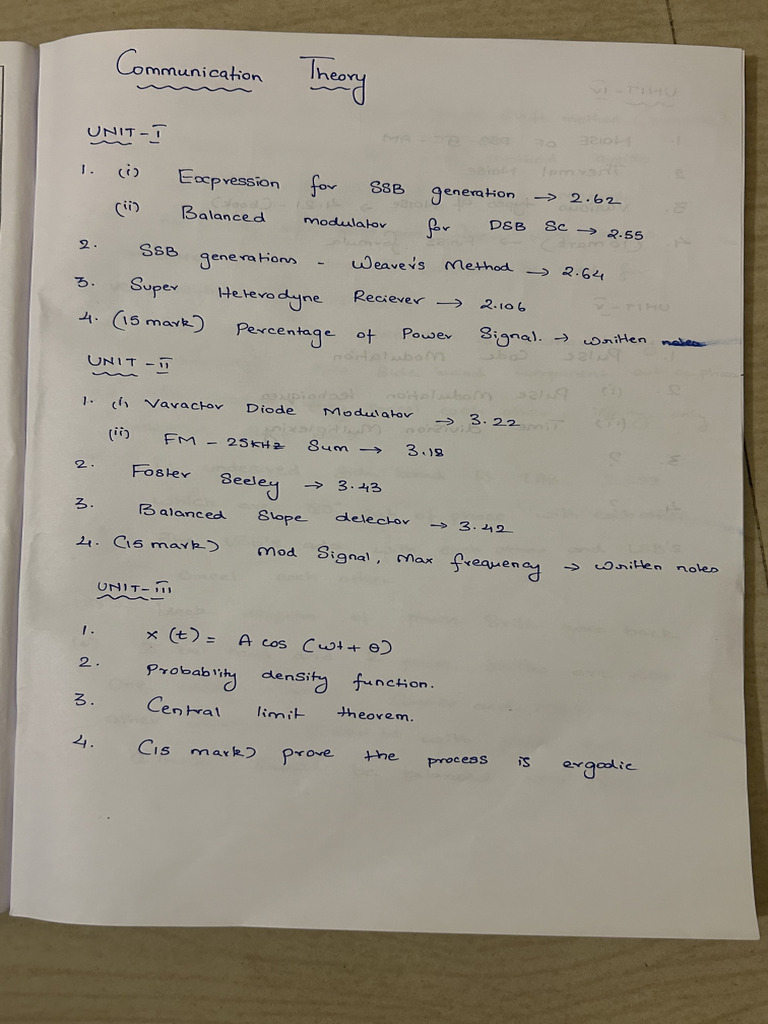 Communication Theory
UNIT-I
1. (i) Expression for SSB generation → 2.62
(ii) Balanced modulator for DSB SC → 2.55
2. SSB generations - Weaver's Method → 2.64
3. Super Heterodyne Reciever → 2.106
4. (15 mark) Percentage of Power Signal. → written notes
UNIT-II
1. (i) Varactor Diode Modulator → 3.22
(ii) FM - 25KHz Sum → 3.18
2. Foster Seeley → 3.43
3. Balanced Slope detector → 3.42
4. (15 mark) Mod Signal, Max frequency → written notes
UNIT-III
1. x(t) = A cos (ωt + θ)
2. Probablity density function.
3. Central limit theorem.
4. (15 mark) prove the process is ergodic